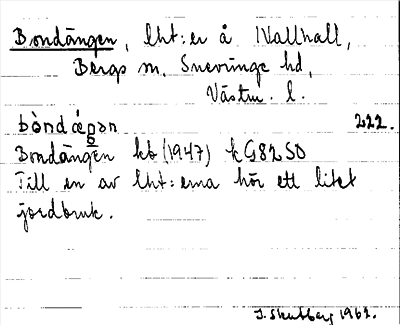 Bondängen, lht:er å Wallhall,
Bergs sn, Snevringe hd,
Västm. l.
bòndǽŋən 222.
Bondängen kb (1947) kG82SO
Till en av lht:erna hör ett litet
jordbruk.
1962.